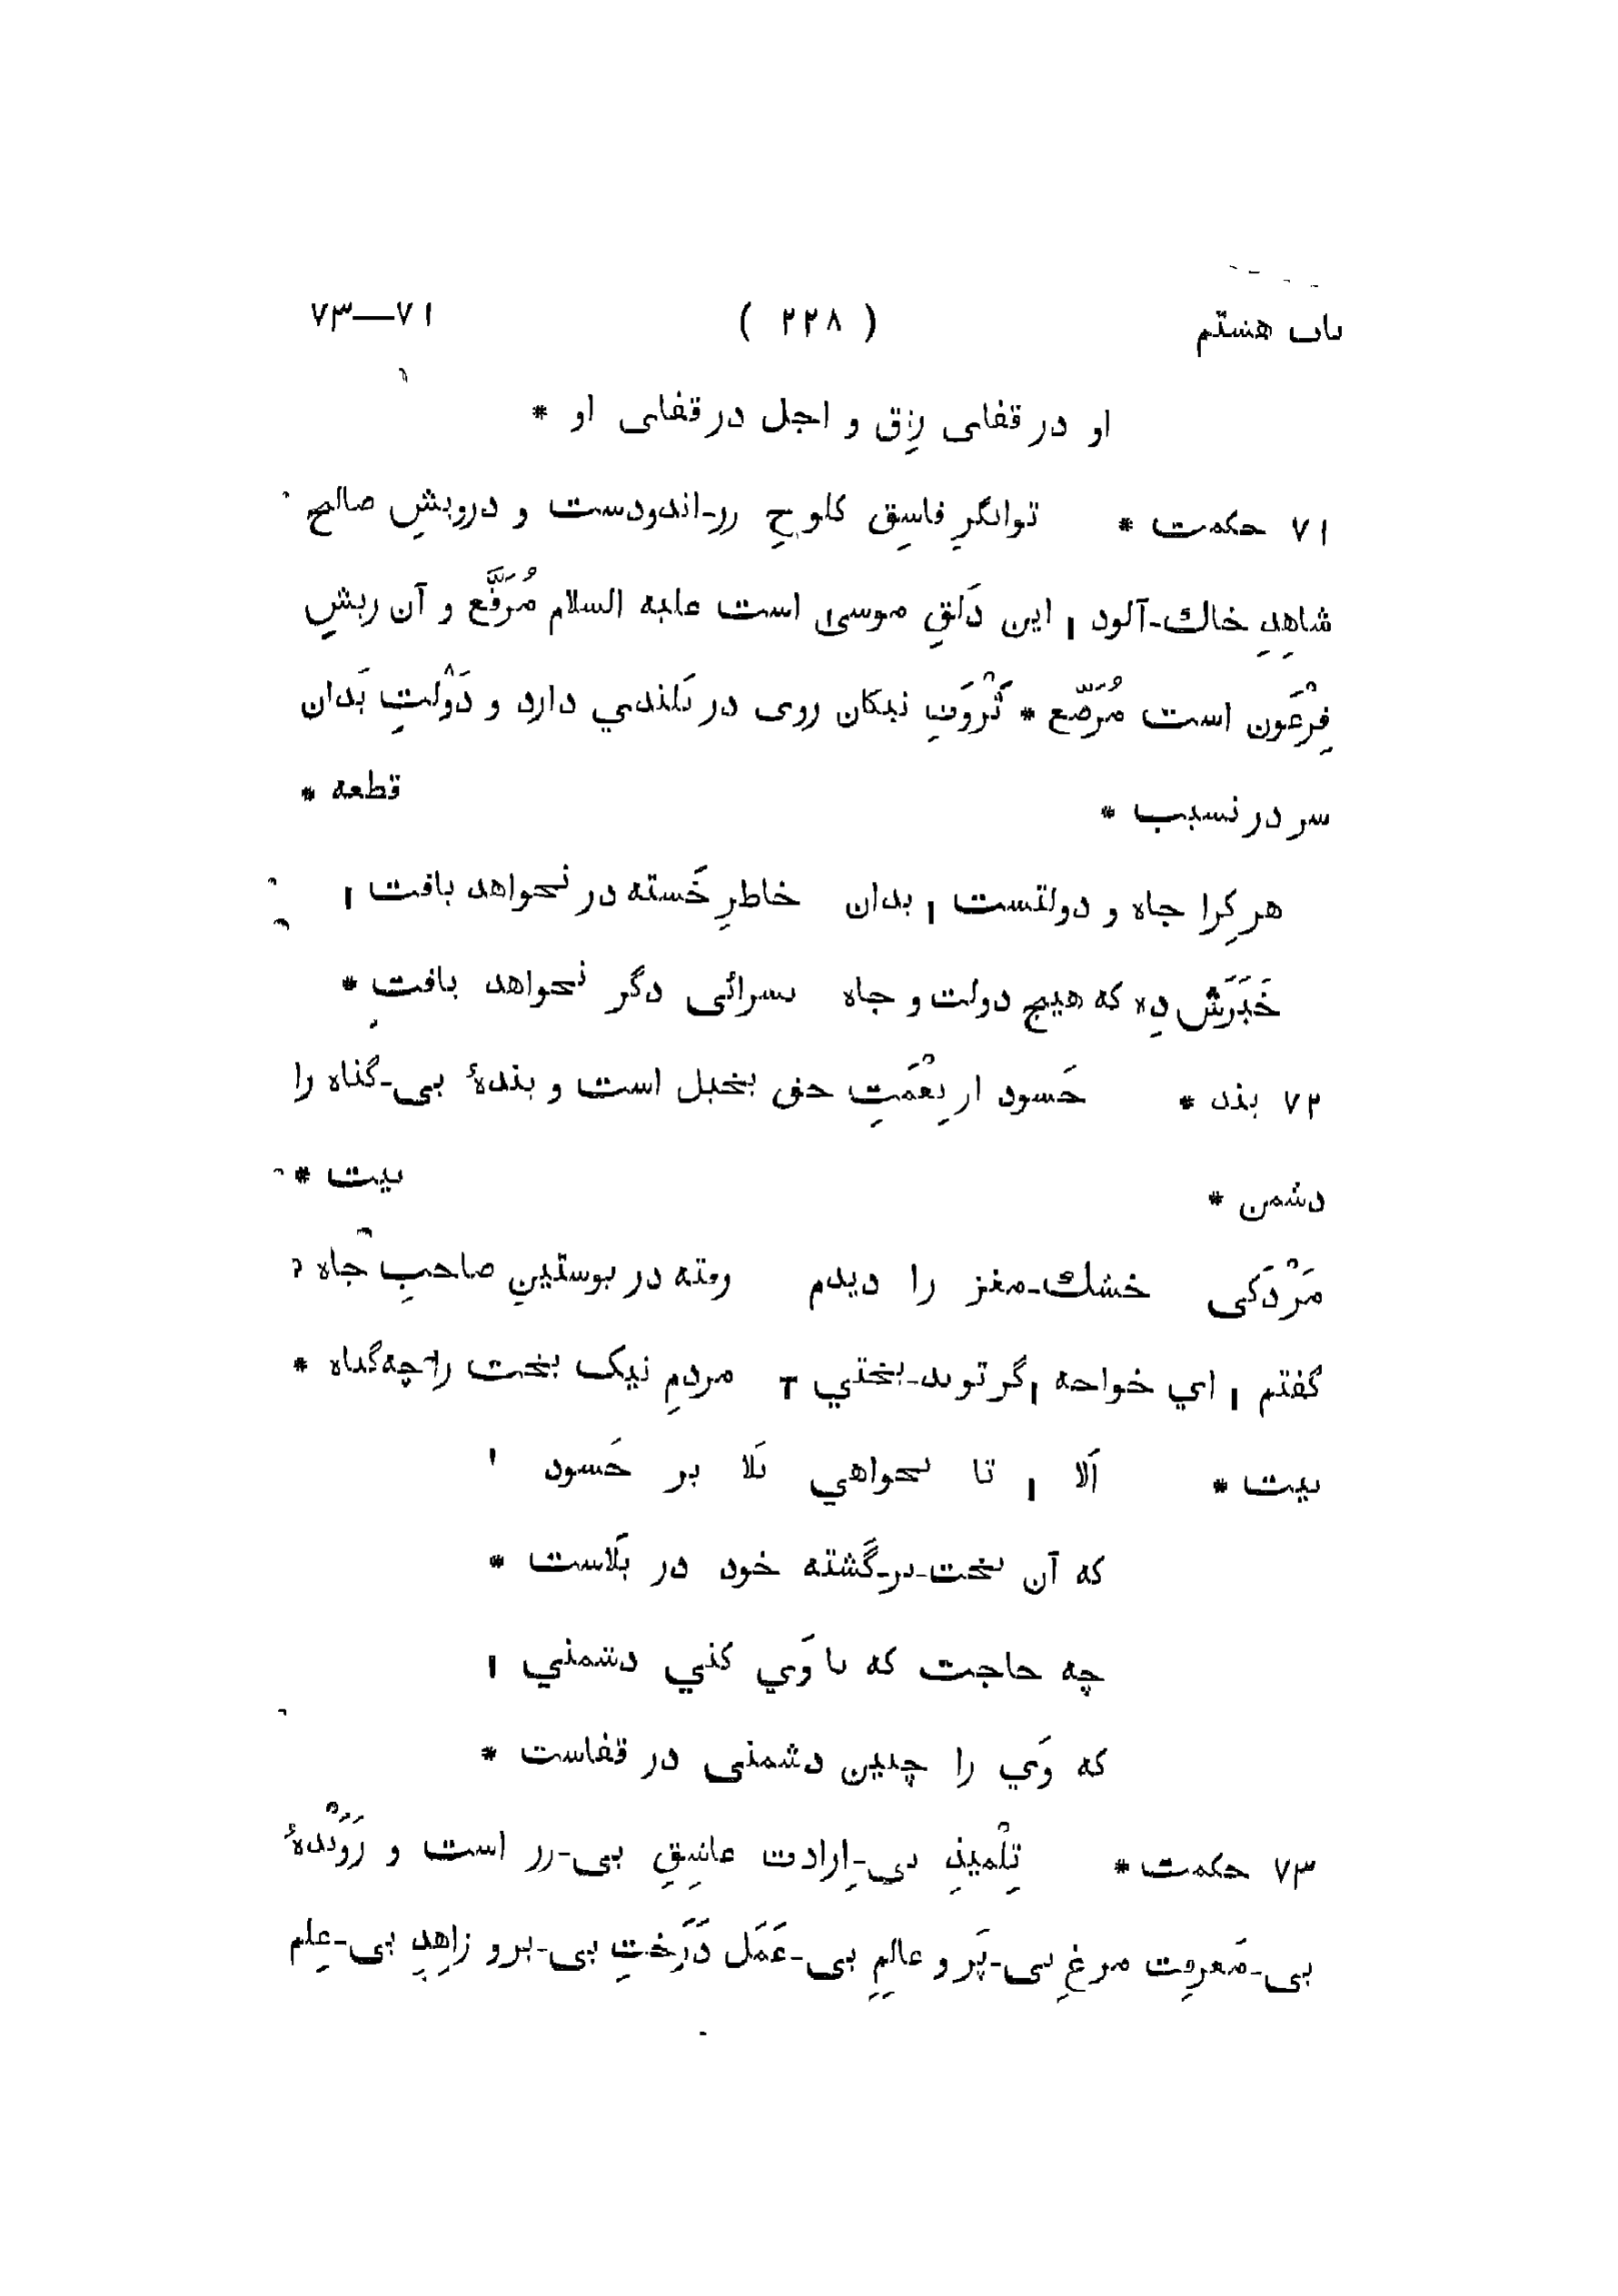 باب هشتم ( ۲۲۸ ) ۷۱—۷۳
او در قفای رِزق و اجل در قفای او *
۷۱ حکمت * توانگرِ فاسِق کلوخِ زر-اندودست و درویشِ صالح
شاهِدِ خاك-آلود ، این دَلقِ موسیٰ است علیه السلام مُرَقَّع و آن ریشِ
فِرْعَون است مُرَصّع * ثَرْوَتِ نیکان روی در بَلندي دارد و دَوْلتِ بَدان
سر در نسیب * قطعه *
هر کِرا جاه و دولتست ، بدان خاطرِ خَسته در نخواهد یافت ،
خَبَرَش دِه که هیچ دولت و جاه بسرائی دگر نخواهد یافت *
۷۲ پند * حَسود از نِعْمَتِ حق بخیل است و بندۀ بی-گناه را
دشمن * بیت *
مَرْدَکی خشك-مغز را دیدم رفته در پوستینِ صاحبِ جاه ،
گفتم ، اي خواجه ، گر تو بد-بختي ، مردمِ نیک بخت را چه گناه *
بیت * اَلا ، تا نخواهي بَلا بر حَسود ،
که آن بخت-بر-گَشته خود در بَلاست *
چه حاجت که با وَي کني دشمني ،
که وَي را چنین دشمنی در قفاست *
۷۳ حکمت * تِلْمیذِ بی-اِرادت عاشِقِ بی-زر است و رَوَنْدۀ
بی-مَعرِفت مرغِ بی-پَر و عالمِ بی-عَمَل دَرَختِ بی-بر و زاهِدِ بی-عِلم